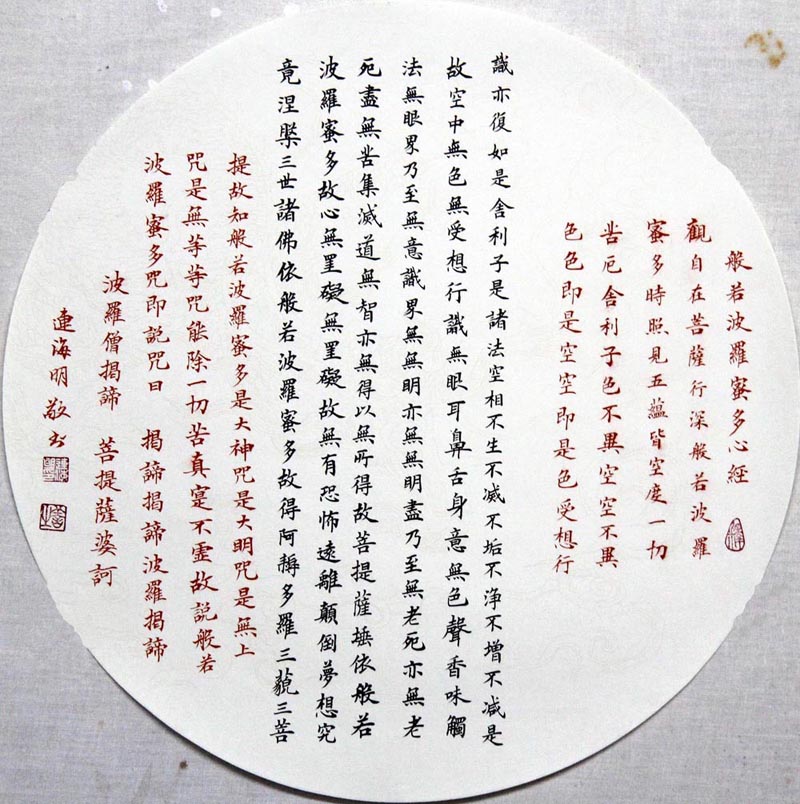 般若波羅蜜多心經
觀自在菩薩行深般若波羅
蜜多時照見五蘊皆空度一切
苦厄舍利子色不異空空不異
色色即是空空即是色受想行
識亦復如是舍利子是諸法空相不生不滅不垢不淨不增不減是
故空中無色無受想行識無眼耳鼻舌身意無色聲香味觸
法無眼界乃至無意識界無無明亦無無明盡乃至無老死亦無老
死盡無苦集滅道無智亦無得以無所得故菩提薩埵依般若
波羅蜜多故心無罣礙無罣礙故無有恐怖遠離顛倒夢想究
竟涅槃三世諸佛依般若波羅蜜多故得阿耨多羅三藐三菩
提故知般若波羅蜜多是大神咒是大明咒是無上
咒是無等等咒能除一切苦真寔不虛故說般若
波羅蜜多咒即說咒曰 揭諦揭諦波羅揭諦
波羅僧揭諦 菩提薩婆訶
連海明敬书